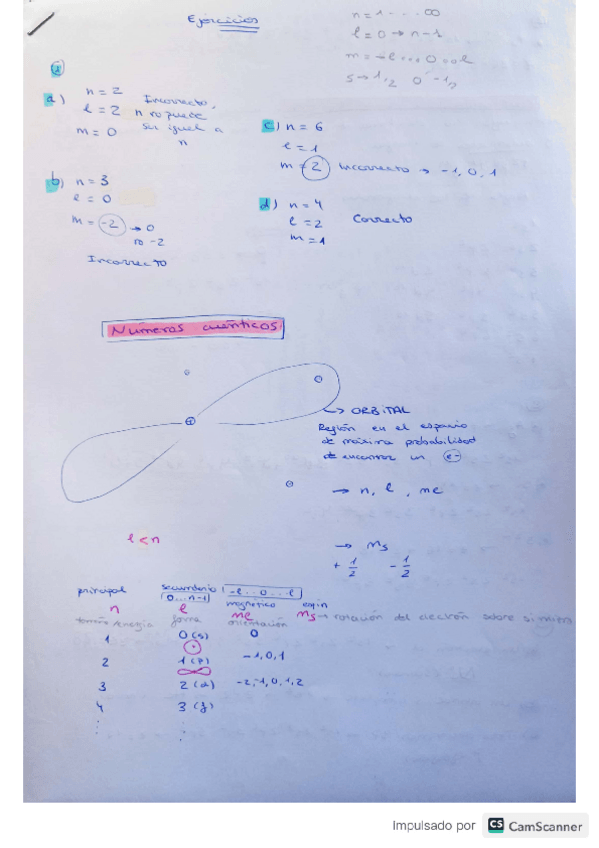 Ejercicios
n=1 ---- ∞
l=0 → n-1
m=-l...0...l
s→1/2 o -1/2
a)
n=2
l=2
m=0
Incorrecto,
n no puede
ser igual a
n
b) n=3
l=0
m=-2 → 0
no -2
Incorrecto
c) n=6
l=1
m=2 Incorrecto → -1, 0, 1
d) n=4
l=2 Correcto
m=1
Números cuánticos
→ ORBITAL
Región en el espacio
de máxima probabilidad
de encontrar un e-
→ n, l, me
l<n
→ Ms
+ 1/2 - 1/2
principal secundario -l...0...l
0...n-1
magnético espín
n l me Ms → rotación del electrón sobre si mismo
tamaño/energía forma orientación
1 0(s) 0
2 1(p) -1,0,1
3 2(d) -2,-1,0,1,2
4 3(f)
Impulsado por CS CamScanner